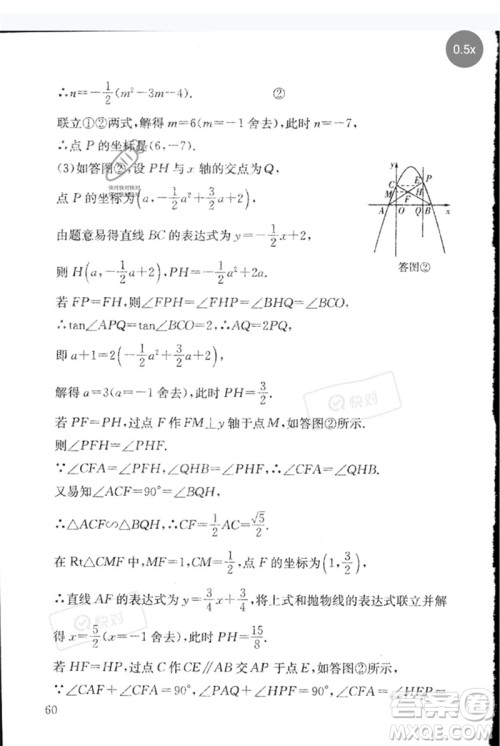 0.5x
∴n=-1/2(m²-3m-4). ②
联立①②两式,解得 m=6(m=-1舍去),此时 n=-7,
∴点 P 的坐标是(6,-7).
(3)如答图②,设 PH 与 x 轴的交点为 Q,
点 P 的坐标为(a,-1/2a²+3/2a+2),
由题意易得直线 BC 的表达式为 y=-1/2x+2,
则 H(a,-1/2a+2),PH=-1/2a²+2a.
若 FP=FH,则∠FPH=∠FHP=∠BHQ=∠BCO,
∴tan∠APQ=tan∠BCO=2,∴AQ=2PQ,
即 a+1=2(-1/2a²+3/2a+2),
解得 a=3(a=-1舍去),此时 PH=3/2.
若 PF=PH,过点 F 作 FM⊥y 轴于点 M,如答图②所示.
则∠PFH=∠PHF.
∵∠CFA=∠PFH,∠QHB=∠PHF,∴∠CFA=∠QHB.
又易知∠ACF=90°=∠BQH,
∴△ACF∽△BQH,∴CF=1/2AC=√5/2.
在 Rt△CMF 中,MF=1,CM=1/2,点 F 的坐标为(1,3/2),
∴直线 AF 的表达式为 y=3/4x+3/4,将上式和抛物线的表达式联立并解
得 x=5/2(x=-1舍去),此时 PH=15/8.
若 HF=HP,过点 C 作 CE∥AB 交 AP 于点 E,如答图②所示,
∵∠CAF+∠CFA=90°,∠PAQ+∠HPF=90°,∠CFA=∠HFP=
60
y
P
C
E
M
F
H
A
O
Q
B
x
答图②
快对
答案圈